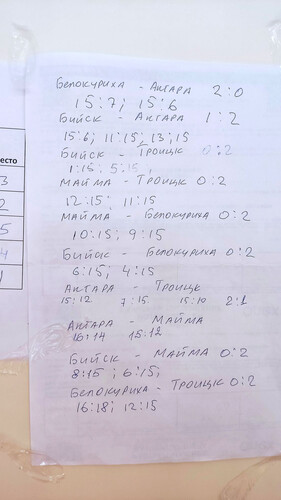 есто
3
2
5
4
1
Белокуриха - Актара 2:0
15:7; 15:6
Бийск - Актара 1:2
15:6; 11:15; 13;15
Бийск - Троицк 0:2
1:15; 5:15,
Майма - Троицк 0:2
12:15; 11:15
Майма - Белокуриха 0:2
10:15; 9:15
Бийск - Белокуриха 0:2
6:15; 4:15
Актара - Троицк
15:12 7:15 15:10 2:1
Актара - Майма
16:14 15:12
Бийск - Майма 0:2
8:15; 6:15;
Белокуриха - Троицк 0:2
16:18; 12:15